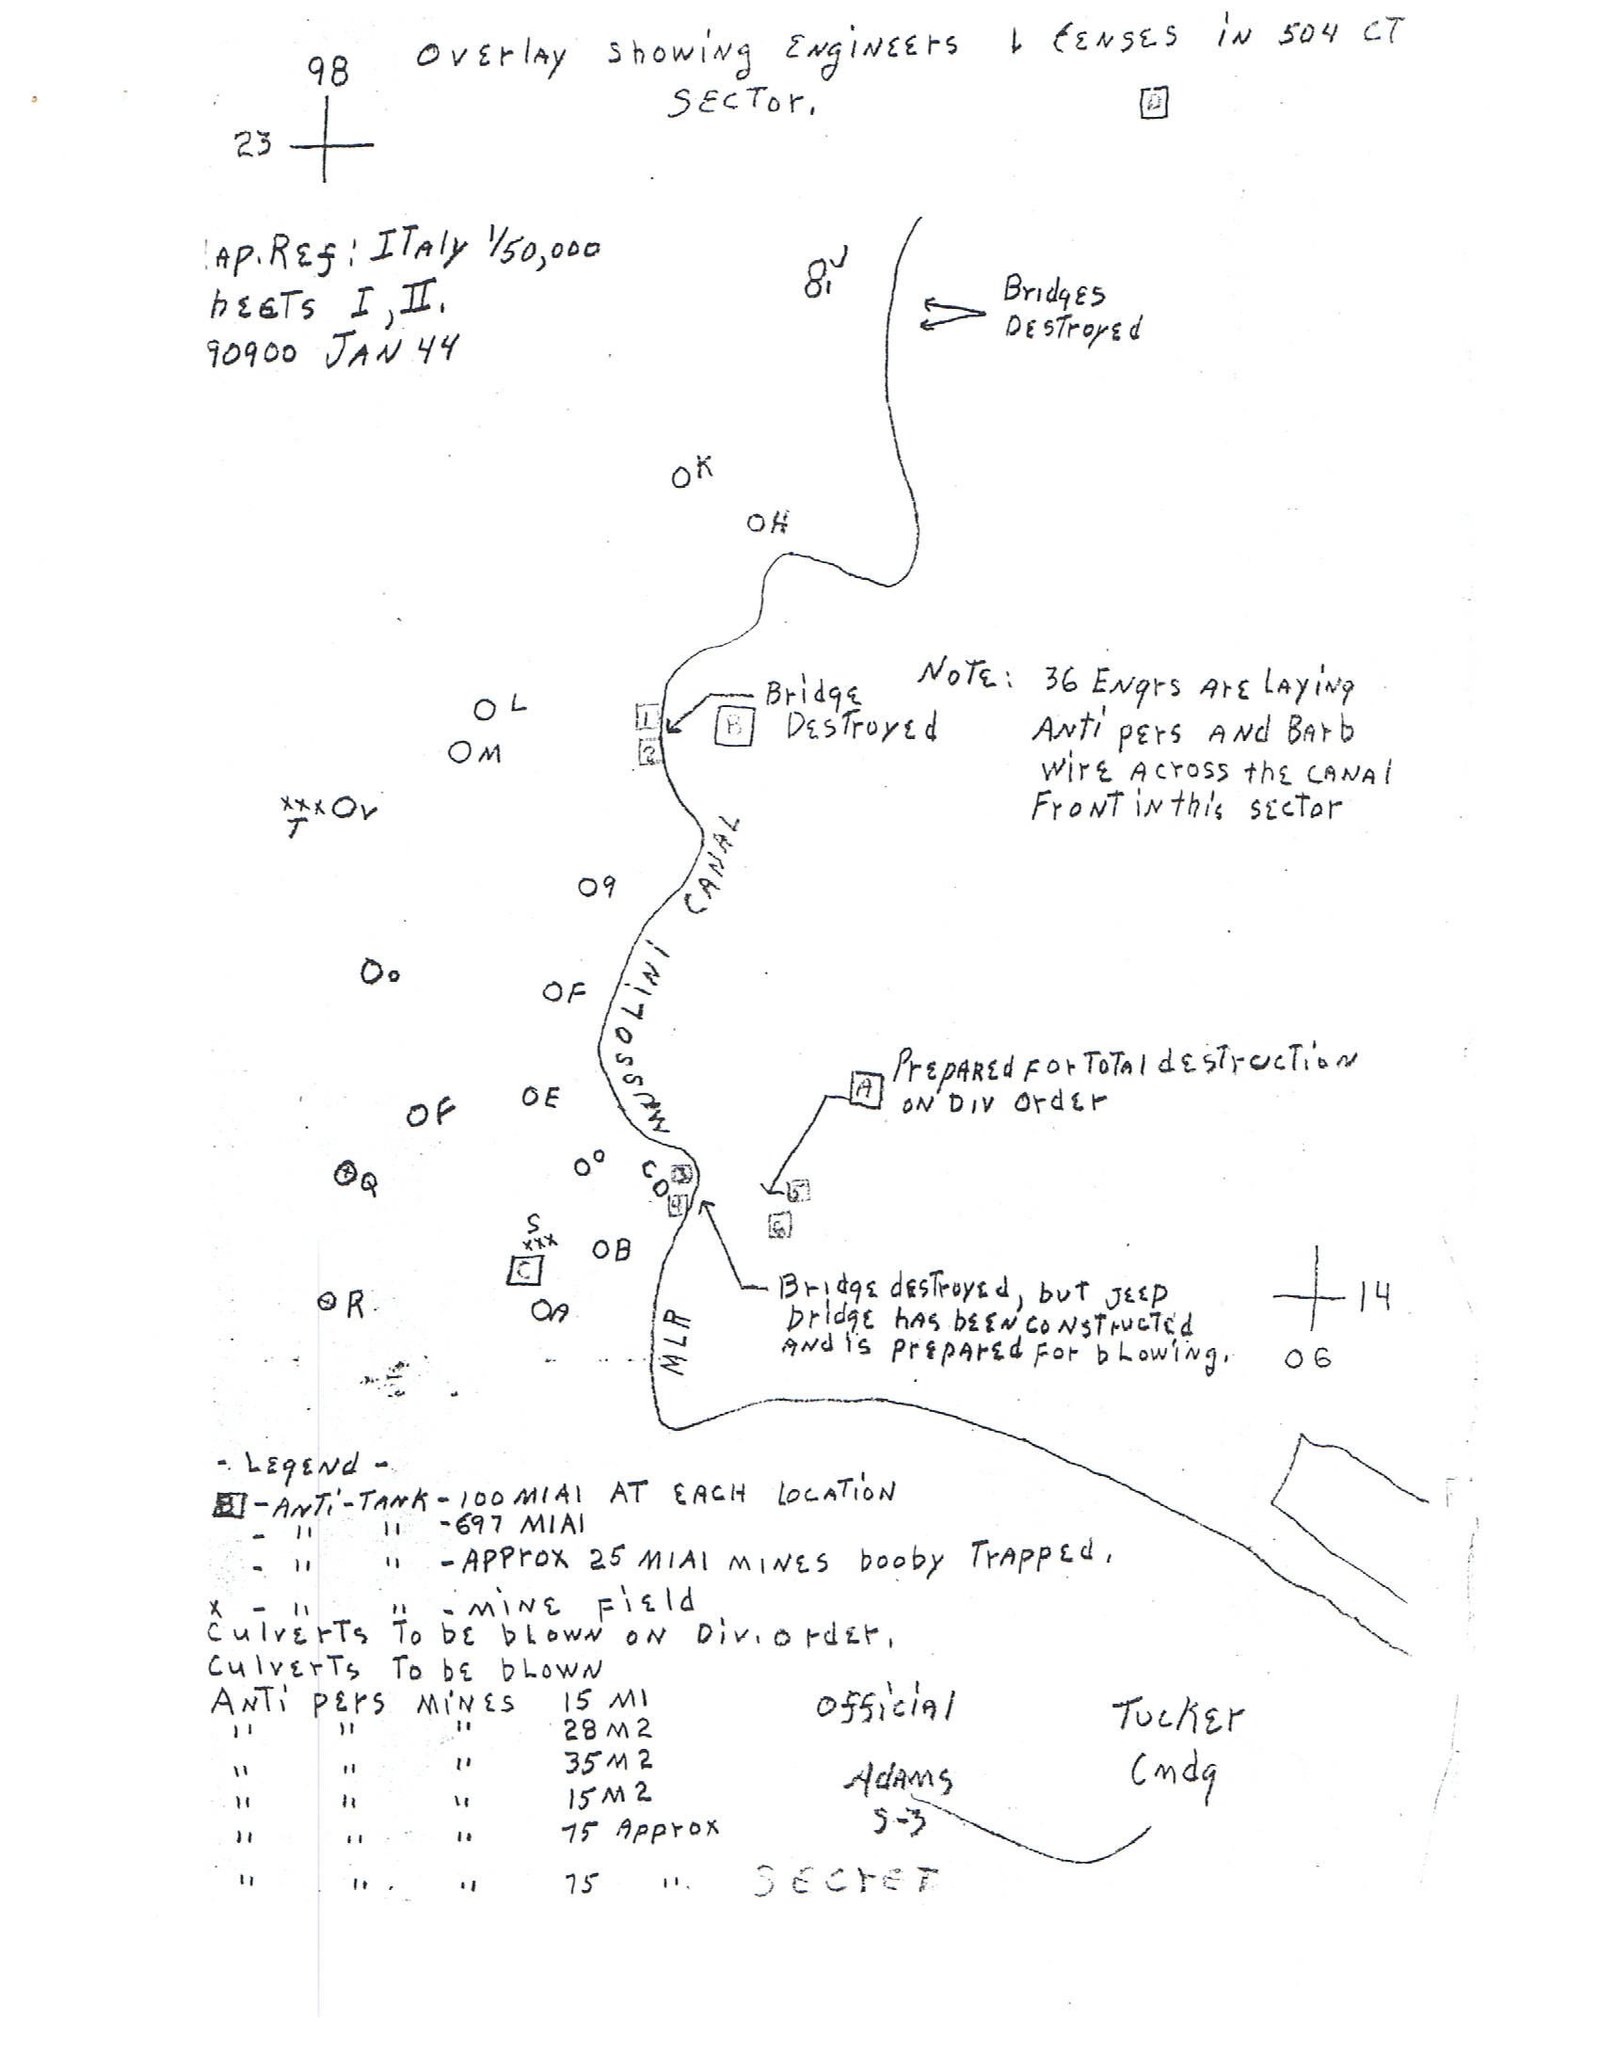 Overlay showing Engineers & Censes in 504 CT
Sector.
98
23
D
ap. Ref: Italy 1/50,000
heets I, II.
90900 Jan 44
J
I
Bridges
Destroyed
K
H
Note: 36 Engrs are laying
Anti pers and Barb
wire across the canal
Front in this sector
L
M
1
2
B
Bridge
Destroyed
xxx V
T
9
Mussolini Canal
F
F
E
A
Prepared for total destruction
on Div order
Q
C
3
4
5
6
S
xxx
C
B
R
A
MLR
Bridge destroyed, but jeep
bridge has been constructed
and is prepared for blowing.
14
06
- Legend -
B - Anti-Tank - 100 M1A1 at each location
- " " - 697 M1A1
- " " - Approx 25 M1A1 mines booby trapped.
x - " " - Mine field
Culverts to be blown on Div. order.
Culverts to be blown
Anti pers mines 15 M1
" " " 28 M2
" " " 35 M2
" " " 15 M2
" " " 75 Approx
" " " 75 "
Official
Adams
S-3
Tucker
Cmdg
Secret